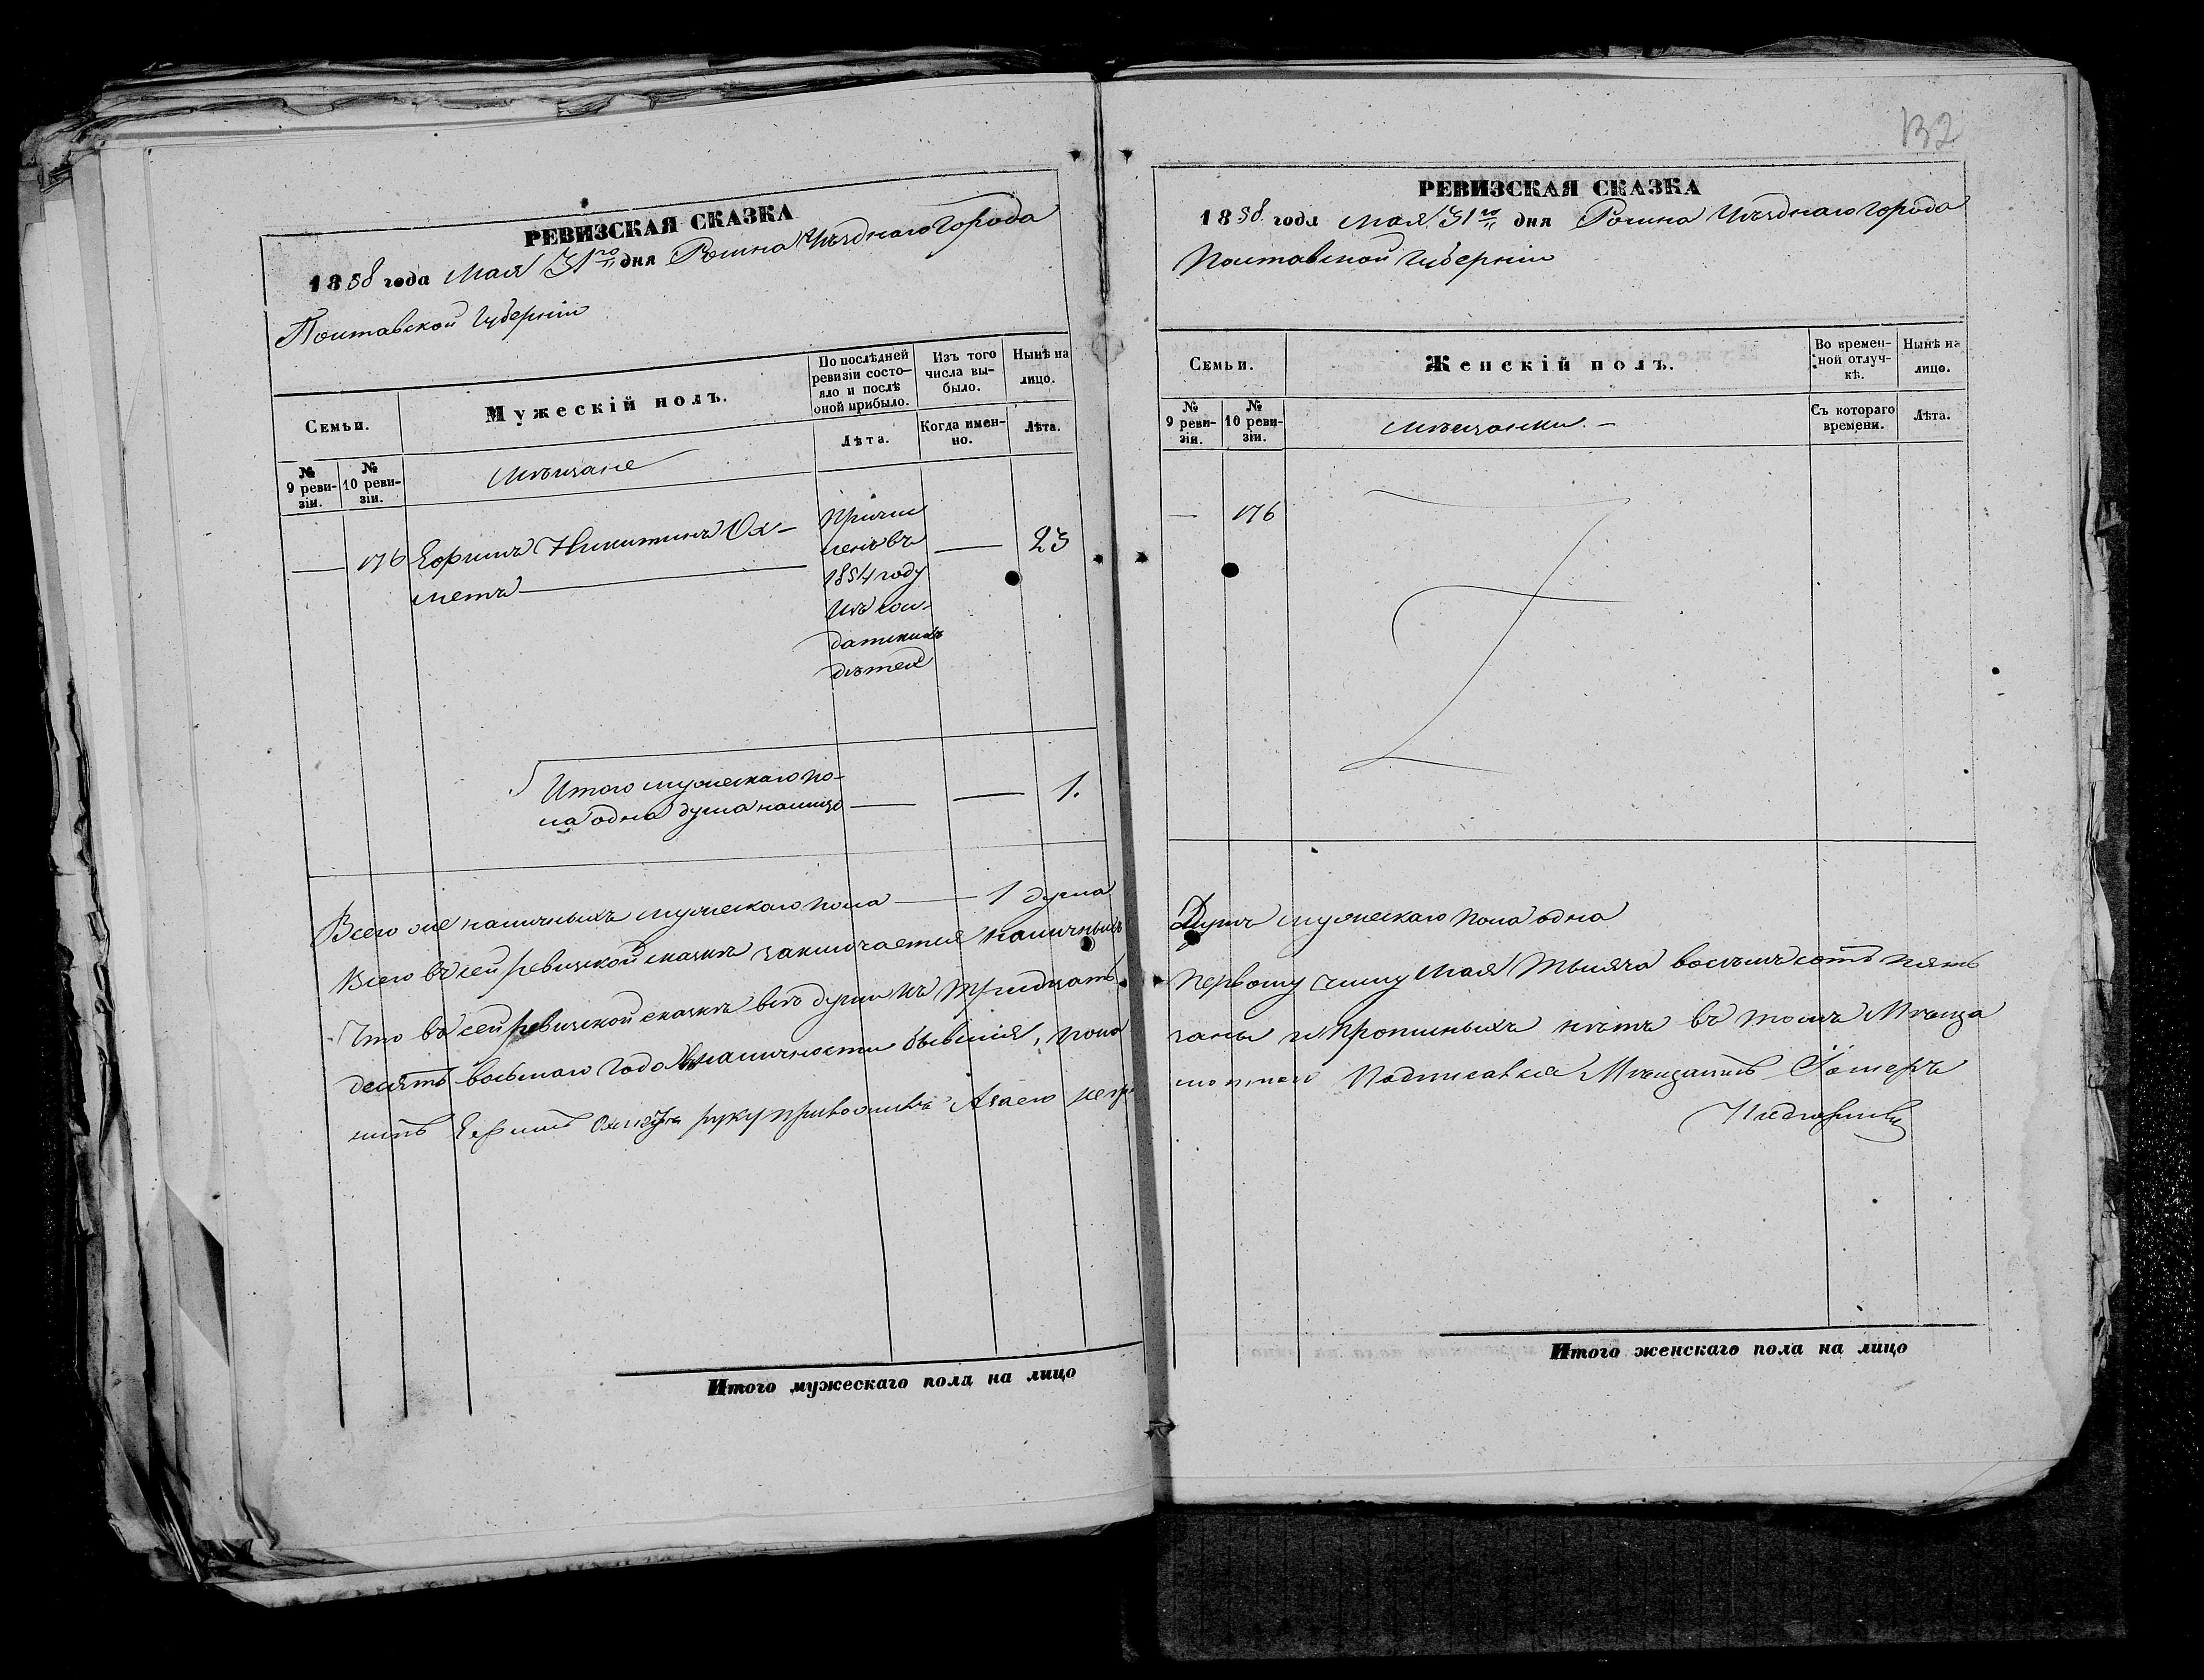 РЕВИЗСКАЯ СКАЗКА
1858 года Мая 31го дня Ромна Уѣзднаго города
Полтавской Губерніи
Семьи.
Мужескій полъ.
По послѣдней ревизіи состояло и послѣ оной прибыло.
Изъ того числа выбыло.
Нынѣ на лицо.
№ 9 ревизіи.
№ 10 ревизіи.
Мѣщане
Лѣта.
Когда именно.
Лѣта.
— 176 Ефимъ Никитинъ Ох-
метъ
Причи
ленъ въ
1854 году
изъ сол-
датскихъ
дѣтей
— 23
Итого мужескаго по-
ла одна душа налицо — — 1.
Всего же наличныхъ мужескаго пола — 1 душа
Всего въ сей ревизской сказкѣ заключается наличныхъ
Что въ сей ревизской сказкѣ всѣ души къ тридцать
десять восьмаго года въ наличности бывшія, пока
нинъ Ефимъ Охметъ руку приложилъ А за его негр
Итого мужескаго пола на лицо
132
РЕВИЗСКАЯ СКАЗКА
1858 года Мая 31го дня Ромна Уѣзднаго города
Полтавской Губерніи
Семьи.
Женскій полъ.
Во временной отлучкѣ.
Нынѣ на лицо.
№ 9 ревизіи.
№ 10 ревизіи.
Мѣщанки. —
Съ котораго времени.
Лѣта.
— 176
Душъ мужескаго пола одна
первому числу Мая тысяча восемь сотъ пять
заны и прописныхъ нѣтъ въ томъ Мѣща
Подписался Мѣщанинъ
Итого женскаго пола на лицо